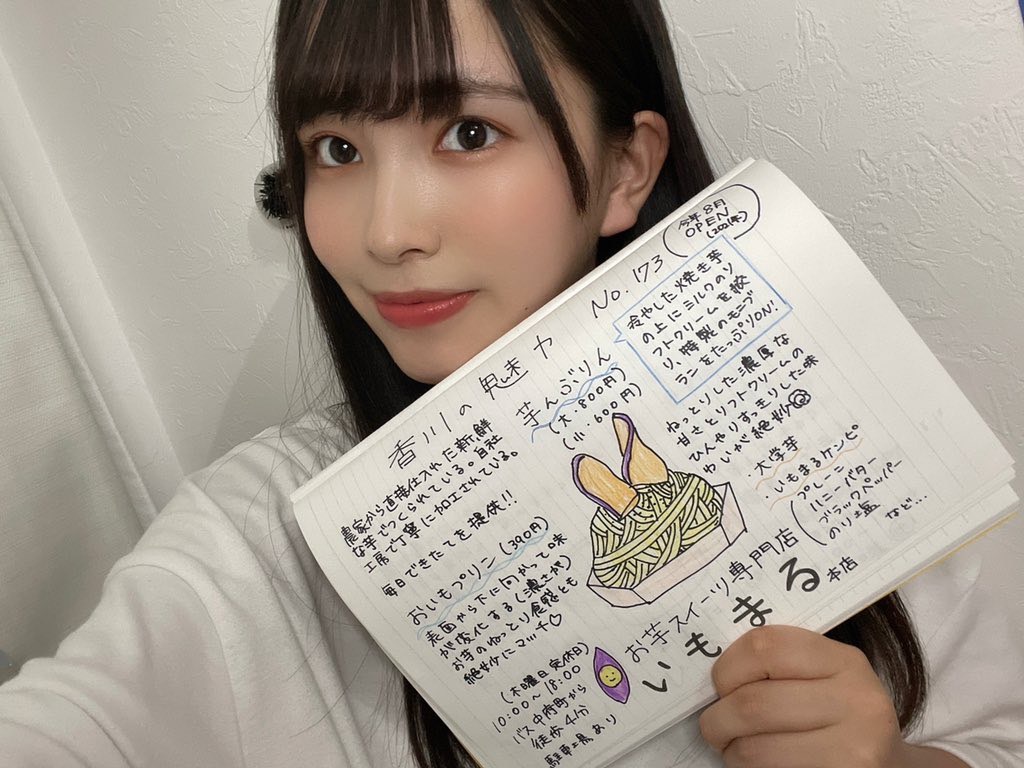 香川の魅力 No.173
今年8月
OPEN
(2021年)
冷やした焼き芋
の上にミルクのソ
フトクリームを絞
り、特製のモンブ
ランをたっぷりON!
芋んぶりん
(大.800円)
(小.600円)
ねっとりした濃厚な
甘さとソフトクリームの
ひんやりすっきりした味
わいが絶妙
大学芋
・いもまるケンピ
プレーン
ハニーバター
ブラックペッパー
のり塩
など…
農家から直接仕入れた新鮮
な芋でつくられている。自社
工房で丁寧に加工されている。
毎日できたてを提供!!
おいもプリン(390円)
表面から下に向かって味
が変化する(濃さが)
お芋のねっとり食感とも
絶妙にマッチ♡
(木曜日定休日)
10:00~18:00
バス中府町から
徒歩4分
駐車場あり
お芋スイーツ専門店
いもまる本店